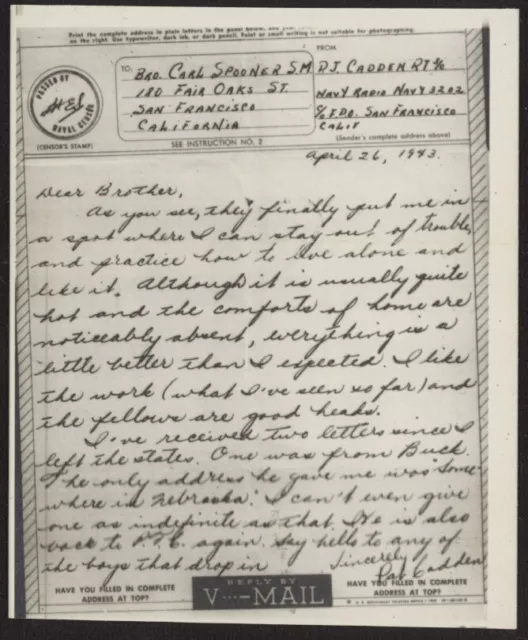 Print the complete address in plain letters in the panel below, and your
on the right. Use typewriter, dark ink, or dark pencil. Faint or small writing is not suitable for photographing.
PASSED BY
NAVAL CENSOR
(CENSOR'S STAMP)
TO:
BRO. CARL SPOONER S.M
180 FAIR OAKS ST.
SAN FRANCISCO
CALIFORNIA
SEE INSTRUCTION NO. 2
FROM
P.J. CADDEN RT 3/c
NAVY RADIO NAVY 3202
c/o F.P.O. SAN FRANCISCO
CALIF
(Sender's complete address above)
April 26, 1943.
Dear Brother,
As you see, they finally put me in
a spot where I can stay out of trouble,
and practice how to live alone and
like it. Although it is usually quite
hot and the comforts of home are
noticeably absent, everything is a
little better than I expected. I like
the work (what I've seen so far) and
the fellows are good heads.
I've received two letters since I
left the states. One was from Buck.
The only address he gave me was "Some-
where in Nebraska." I can't even give
one as indefinite as that. He is also
back to P.F.C. again. Say hello to any of
the boys that drop in
Sincerely
Pat Cadden
HAVE YOU FILLED IN COMPLETE
ADDRESS AT TOP?
REPLY BY
V···—MAIL
HAVE YOU FILLED IN COMPLETE
ADDRESS AT TOP?